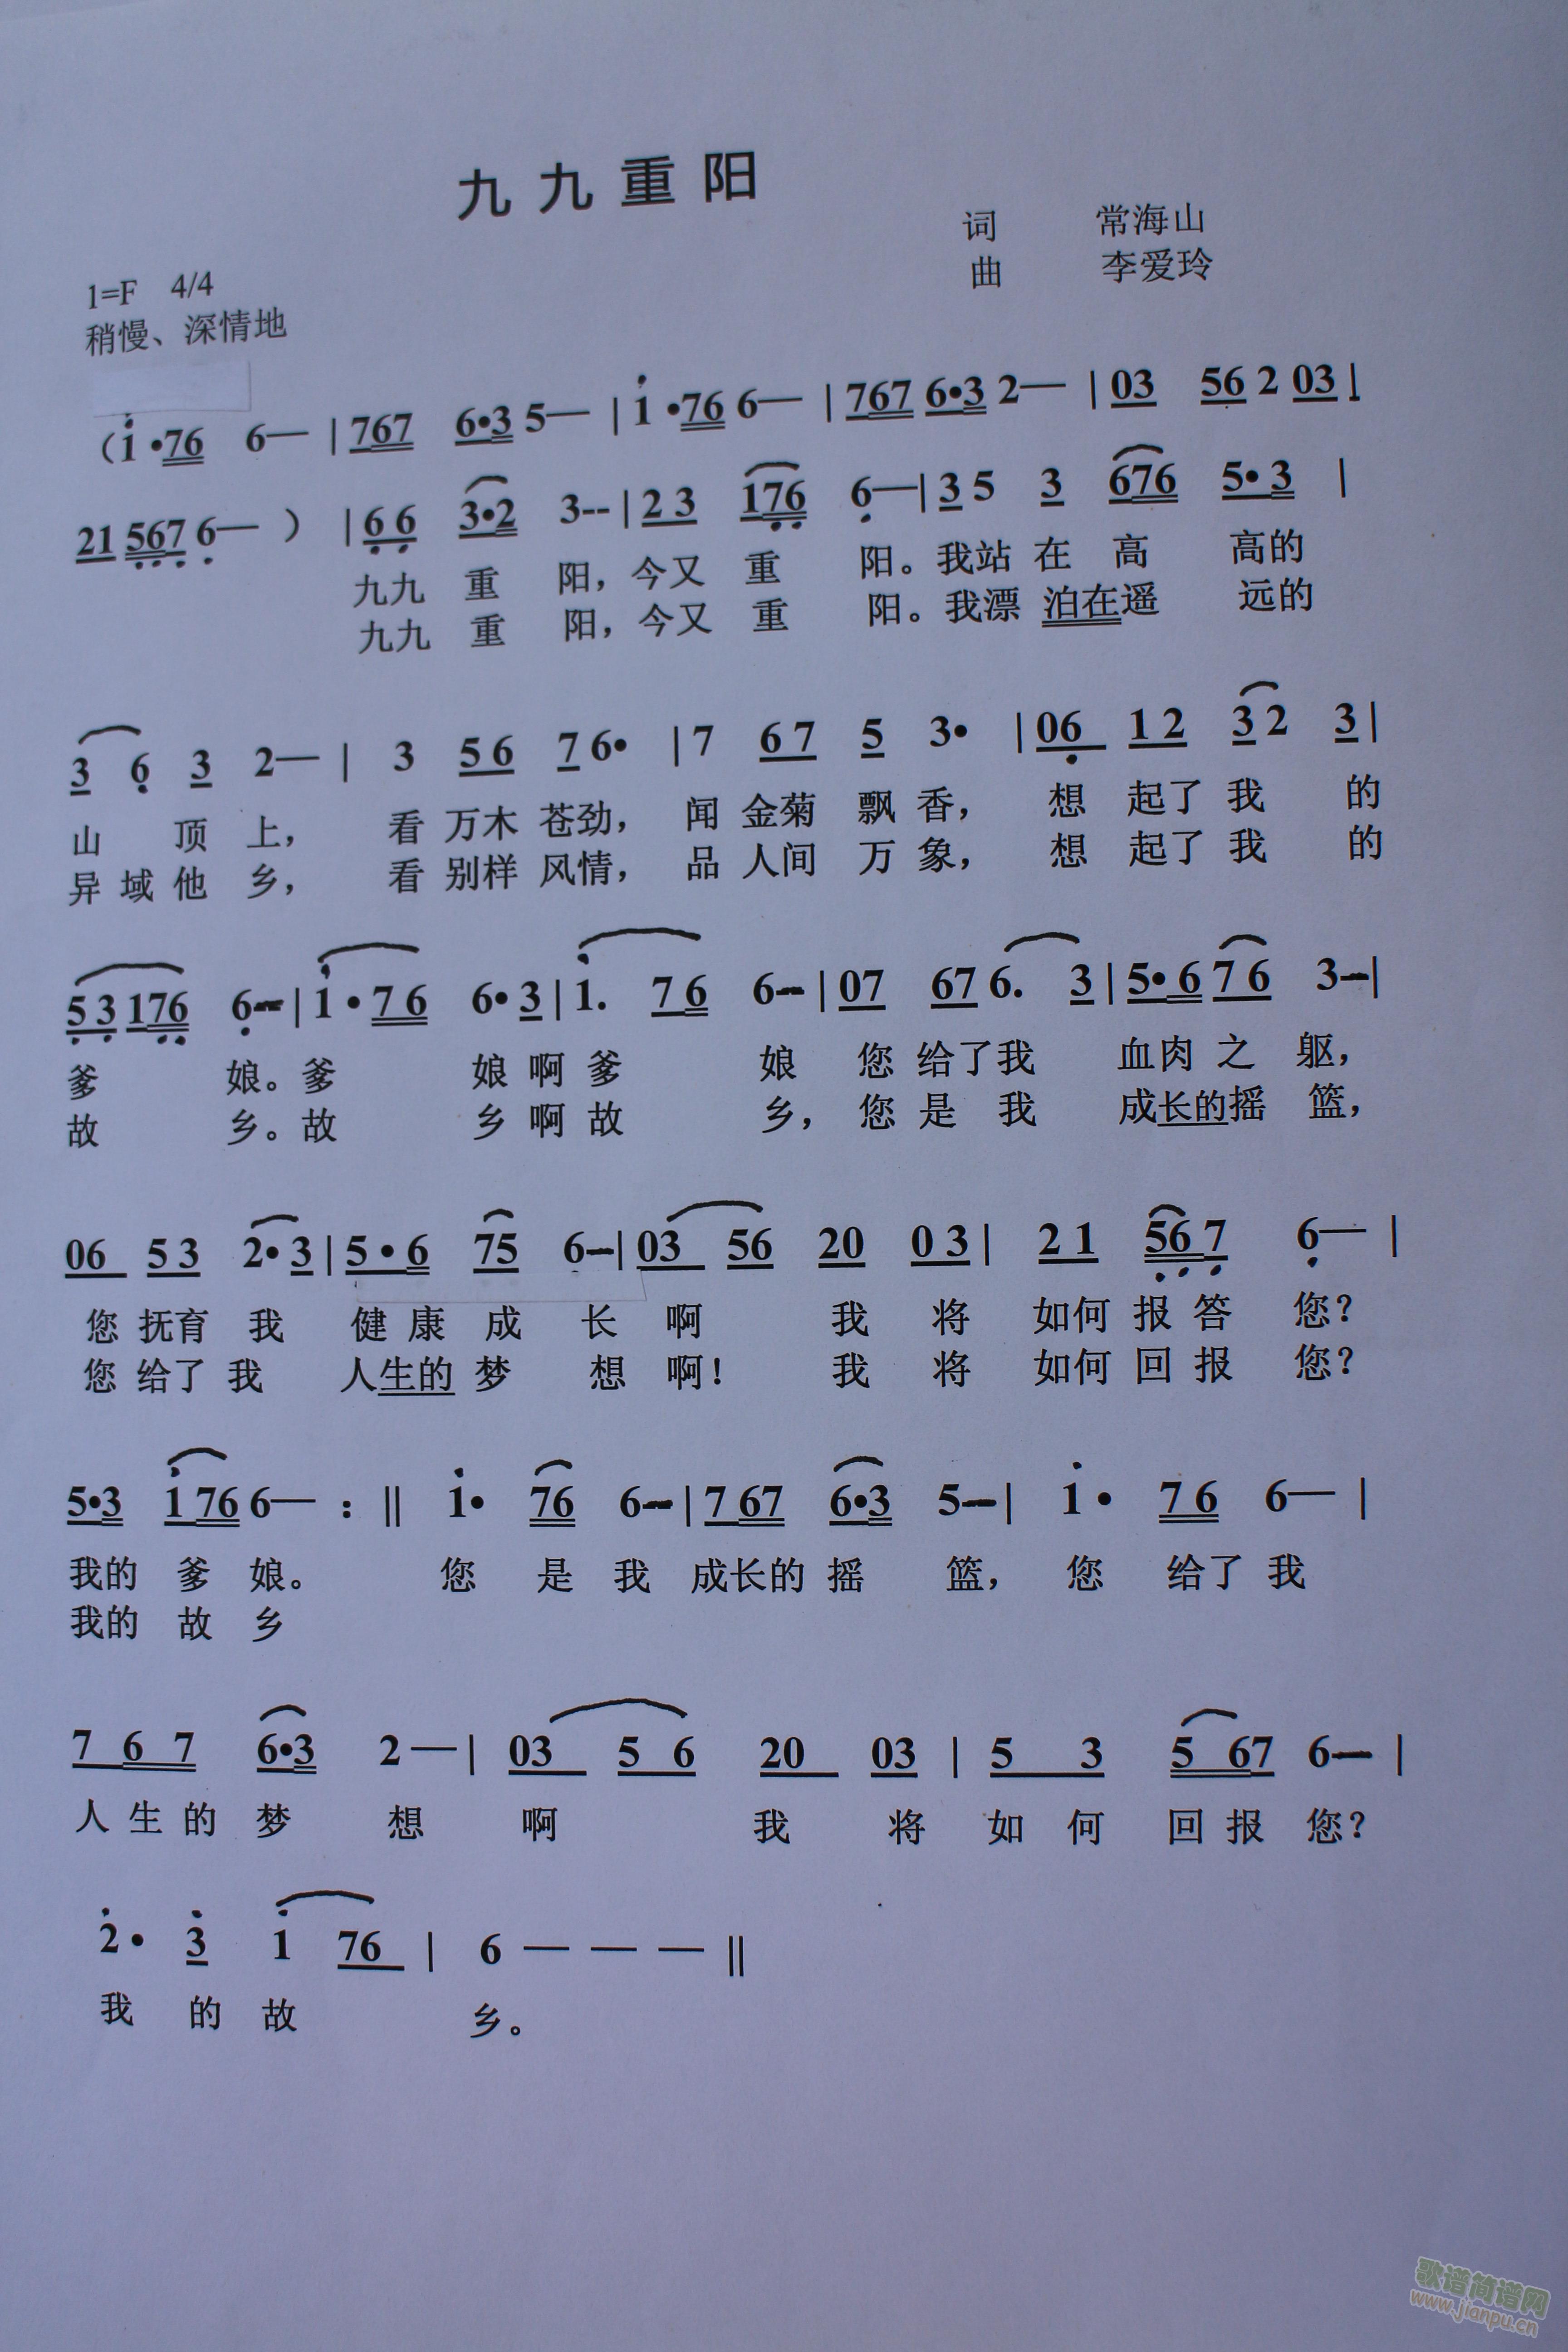 九九重阳
词 常海山
1=F 4/4 曲 李爱玲
稍慢、深情地
（1̇ •76 6— | 767 6•3 5— | 1̇ •76 6— | 767 6•3 2— | 03 56 2 03 |
21 5̣6̣7̣ 6̣— ） | 6̣ 6̣ 3•2 3-- | 2 3 17̣6̣ 6̣— | 3 5 3 676 5• 3 |
九九 重 阳，今又 重 阳。我站 在 高 高的
九九 重 阳，今又 重 阳。我漂 泊在遥 远的
3 6̣ 3 2— | 3 5 6 7 6• | 7 6 7 5 3• | 06̣ 1 2 3 2 3 |
山 顶 上， 看 万木 苍劲， 闻 金菊 飘 香， 想 起了 我 的
异 域 他 乡， 看 别样 风情， 品 人间 万 象， 想 起了 我 的
5̣ 3̣ 17̣6̣ 6̣— | 1̇ • 7 6 6• 3 | 1̇. 7 6 6— | 07 67 6. 3 | 5• 6 7 6 3— |
爹 娘。爹 娘 啊 爹 娘 您 给了我 血肉 之 躯，
故 乡。故 乡 啊 故 乡， 您 是 我 成长的摇 篮，
06 5 3 2• 3 | 5 • 6 75 6— | 03 56 20 0 3 | 2 1 5̣6̣ 7̣ 6̣— |
您 抚育 我 健 康 成 长 啊 我 将 如何 报 答 您？
您 给了 我 人生的 梦 想 啊！ 我 将 如何 回 报 您？
5•3 1̇ 76 6— :‖ 1̇• 76 6— | 7 67 6•3 5— | 1̇ • 7 6 6— |
我的 爹 娘。 您 是 我 成长的 摇 篮， 您 给了 我
我的 故 乡
7 6 7 6•3 2— | 03 5 6 20 03 | 5 3 5 67 6— |
人 生 的 梦 想 啊 我 将 如 何 回 报 您？
2̇ • 3̇ 1̇ 76 | 6 — — — ‖
我 的 故 乡。
歌谱简谱网
www.jianpu.cn